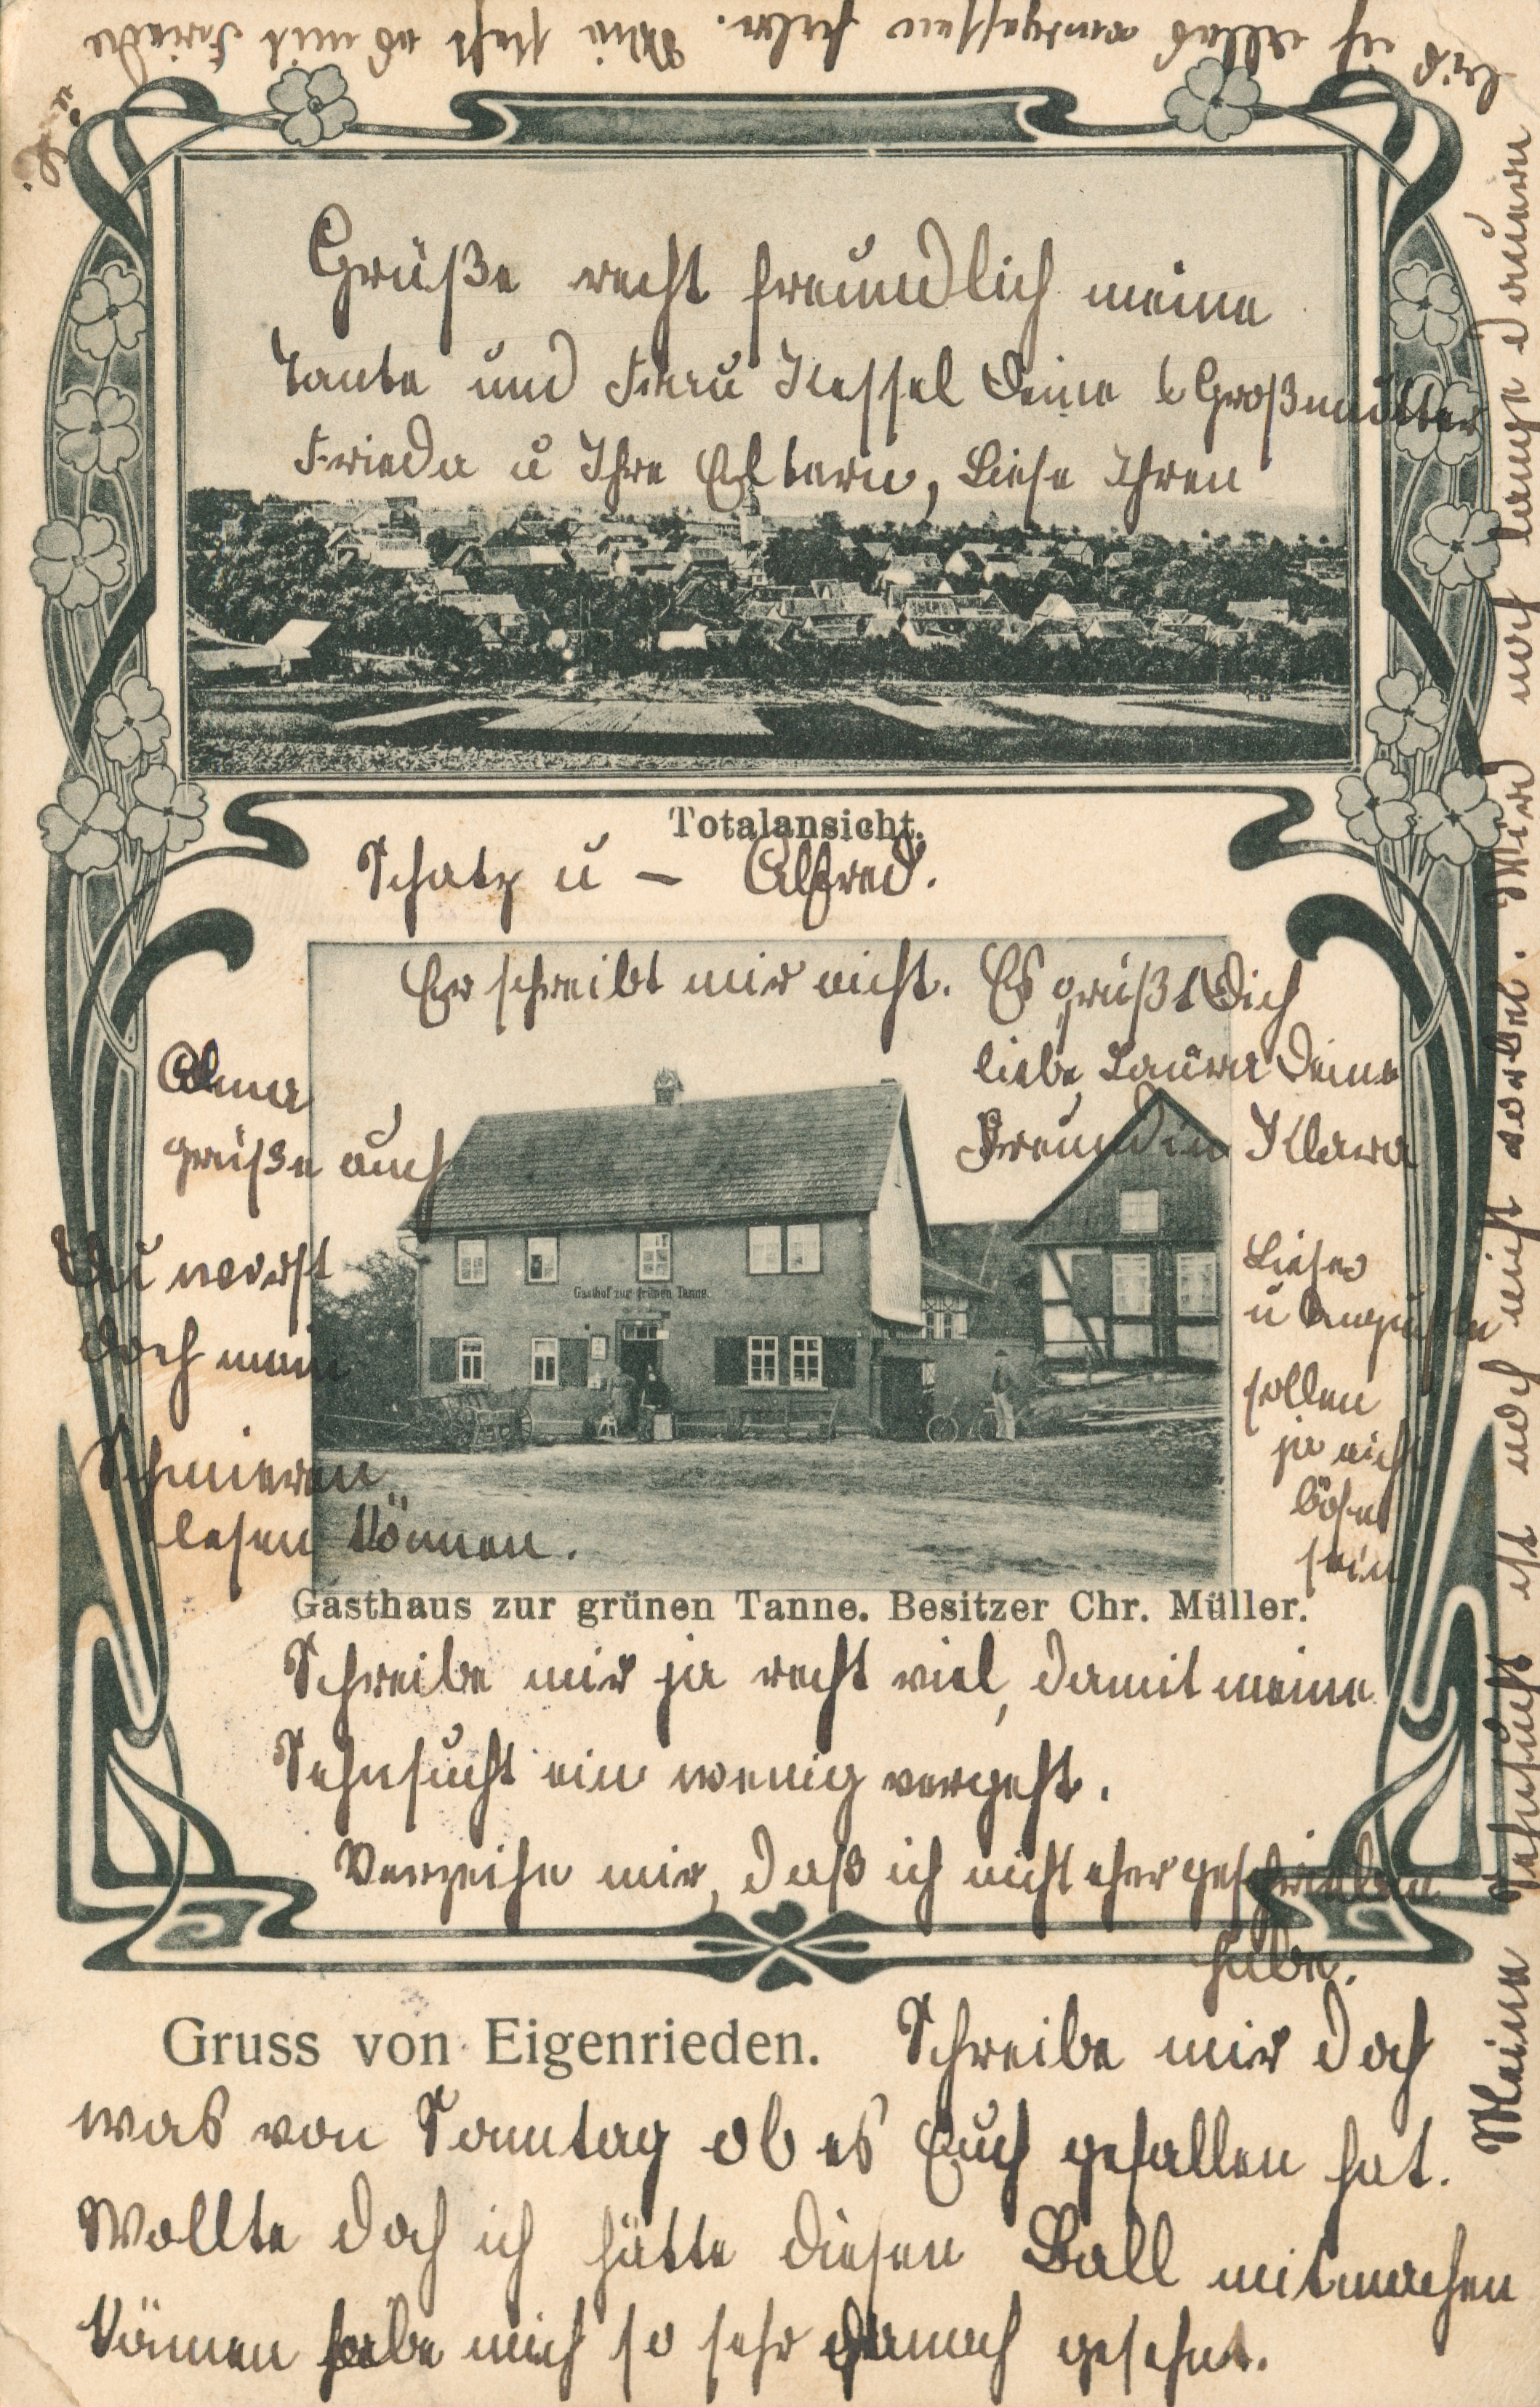 Grüße recht freundlich meine
Tante und Frau Kessel Deine l Großmutter
Frieda u Ihre Eltern, Liese Ihren
Totalansicht.
Schatz u – Alfred.
Er schreibt mir nicht. Es grüßt Dich
liebe Laura Deine
Freundin Klara
Alma
grüße auch
Du wirst
doch mein
Schmieren
lesen können.
Gasthof zur grünen Tanne.
Liese
u Auguste
sollen
ja nicht
böse
sein
Gasthaus zur grünen Tanne. Besitzer Chr. Müller.
Schreibe mir ja recht viel, damit meine
Sehnsucht ein wenig vergeht.
Verzeihe mir, daß ich nicht eher geschrieben
habe.
Gruss von Eigenrieden.
Schreibe mir doch
was von Sonntag ob es Euch gefallen hat.
Wollte doch ich hätte diesen Ball mitmachen
können habe mich so sehr danach gesehnt.
Meine Sehnsucht ist noch nicht vorbei. Wird noch lange dauern
bis ich alles vergessen habe. Wie steht es mit Frieda
u